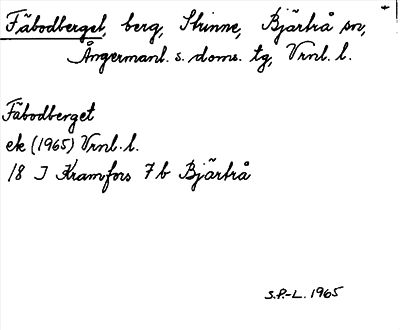 Fäbodberget, berg, Skinne, Bjärtrå sn,
Ångermanl. s. doms. tg, Vrnl. l.
Fäbodberget
ek (1965) Vrnl. l.
18 J Kramfors 7b Bjärtrå
S.P.-L. 1965